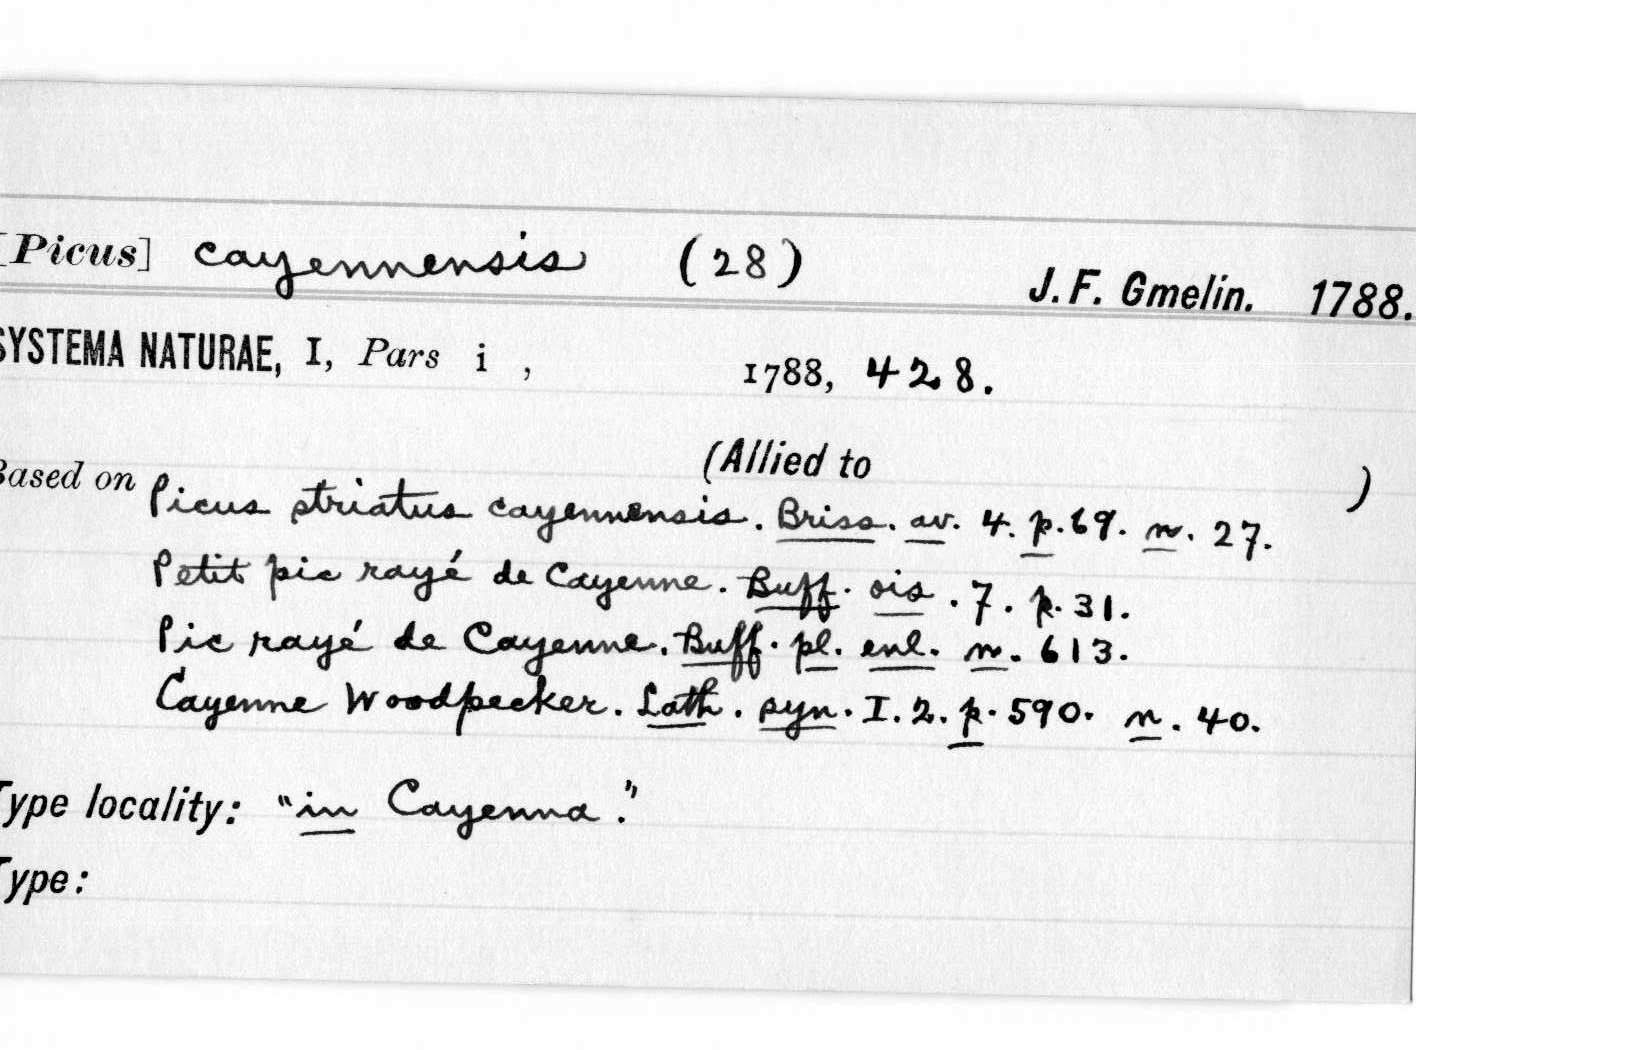 [Picus] cayennensis (28) J. F. Gmelin. 1788.
SYSTEMA NATURAE, I, Pars i , 1788, 428.
(Allied to )
Based on Picus striatus cayennensis. Briss. av. 4. p. 69. n. 27.
Petit pic rayé de Cayenne. Buff. ois. 7. p. 31.
Pic rayé de Cayenne. Buff. pl. enl. n. 613.
Cayenne Woodpecker. Lath. syn. I. 2. p. 590. n. 40.
Type locality: "in Cayenna."
Type: